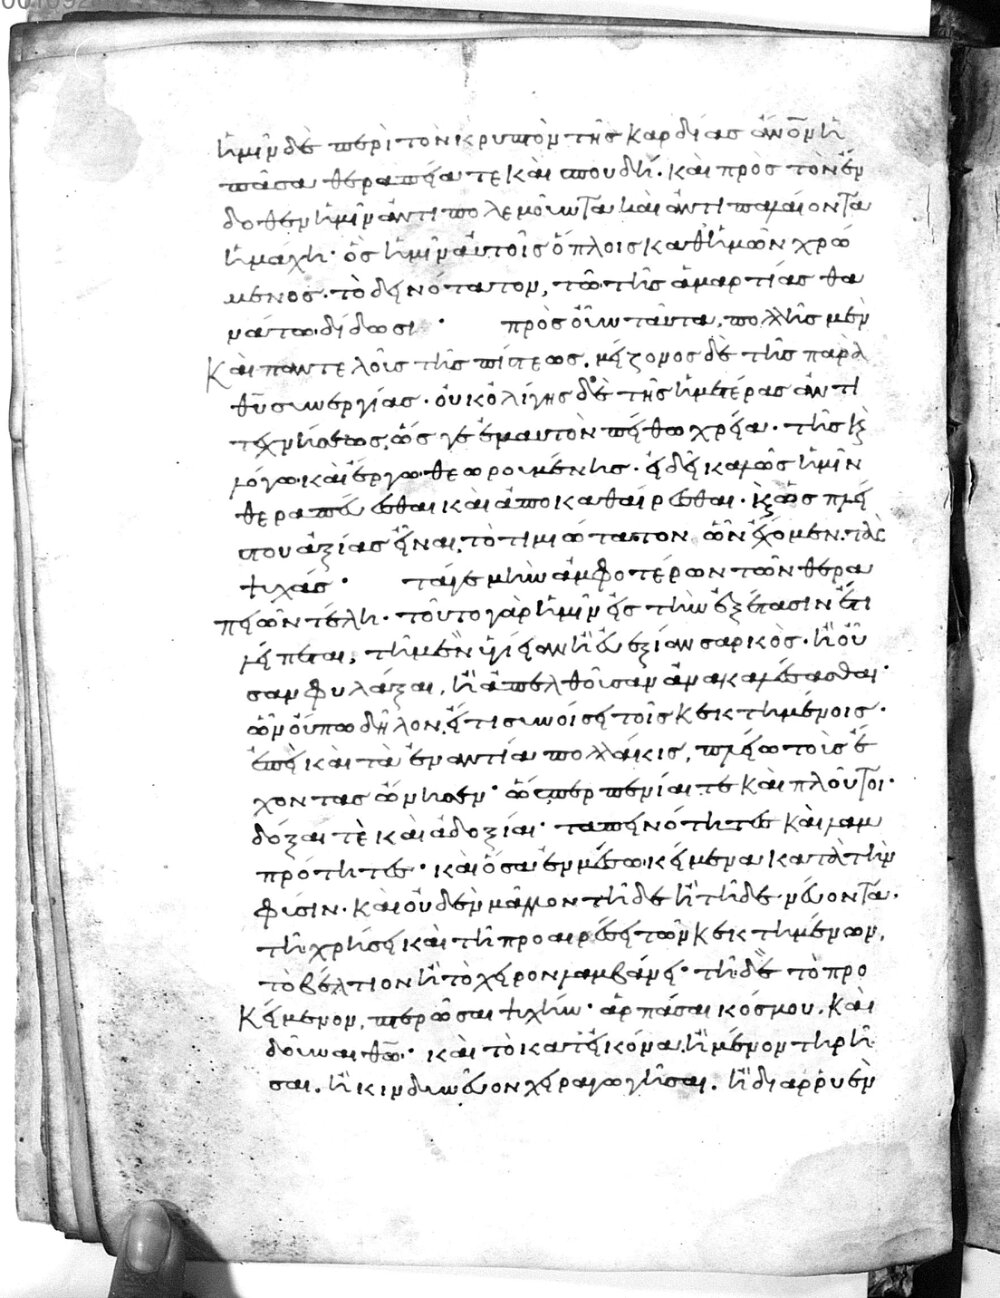 ἡμῖν δὲ περὶ τὸν κρυπτὸν τῆς καρδίας ἄνον ἡ
πᾶσα θεραπεία τε καὶ σπουδή· καὶ πρὸς τὸν ἔν
δοθεν ἡμῖν ἀντιπολεμοῦντα καὶ ἀντιπαλαίοντα
ἡ μάχη· ὃς ἡμῖν αὐτοῖς ὅπλοις καθ' ἡμῶν χρώ
μενος· τὸ δεινότατον, τῶ τῆς ἁμαρτίας θα
νάτω δίδωσι· πρὸς οὖν ταῦτα, πολλῆς μὲν
καὶ παντελοῦς τῆς πίστεως, μείζονος δὲ τῆς παρὰ
θῦ συνεργίας· οὐκ ὀλίγης δὲ τῆς ἡμετέρας ἀντι
τεχνήσεως, ὥς γε ἐμαυτὸν πείθω χρεία· τῆς κ
λόγω καὶ ἔργω θεωρουμένης· εἰ δεῖ καλῶς ἡμῖν
θεραπεύεσθαι καὶ ἀποκαθαίρεσθαι· κ ὡς πλεί
στου ἀξίας εἶναι, τὸ τιμιώτατον ὧν ἔχομεν, τὰς
ψυχάς· τά γε μὴν ἀμφοτέρων τῶν θερα
πειῶν τέλη· τοῦτο γὰρ ἡμῖν εἰς τὴν ἐξέτασιν ἔτι
λείπεται, τῆ μὲν ὑγίειαν ἢ εὐεξίαν σαρκὸς· ἢ οὖ
σαν φυλάξαι, ἢ ἀπελθοῦσαν ἀνακαλέσασθαι·
ὧν οὔπω δῆλον, εἴ τι συνοίσει τοῖς κεκτημένοις·
ἐπεὶ καὶ τὰ ἐναντία πολλάκις, πλείω τοὺς ἔ
χοντας ὤνησεν· ὥσπερ πενίαι τε καὶ πλοῦτοι·
δόξαι τὲ καὶ ἀδοξίαι· ταπεινότητες καὶ λαμ
πρότητες· καὶ ὅσα ἐν μέσω κείμενα κατὰ τὴν
φύσιν· καὶ οὐδὲν μᾶλλον τῆδε ἢ τῆδε νεύοντα·
τῆ χρήσει καὶ τῆ προαιρέσει τῶν κεκτημένων,
τὸ βέλτιον ἢ τὸ χεῖρον λαμβάνει· τῆ δὲ τὸ προ
κείμενον, πτερῶσαι ψυχὴν· ἁρπάσαι κόσμου, καὶ
δοῦναι θῶ· καὶ τὸ κατ' εἰκόνα ἢ μένον τηρῆ
σαι, ἢ κινδυνεῦον χειραγωγῆσαι, ἢ διαρρυὲν